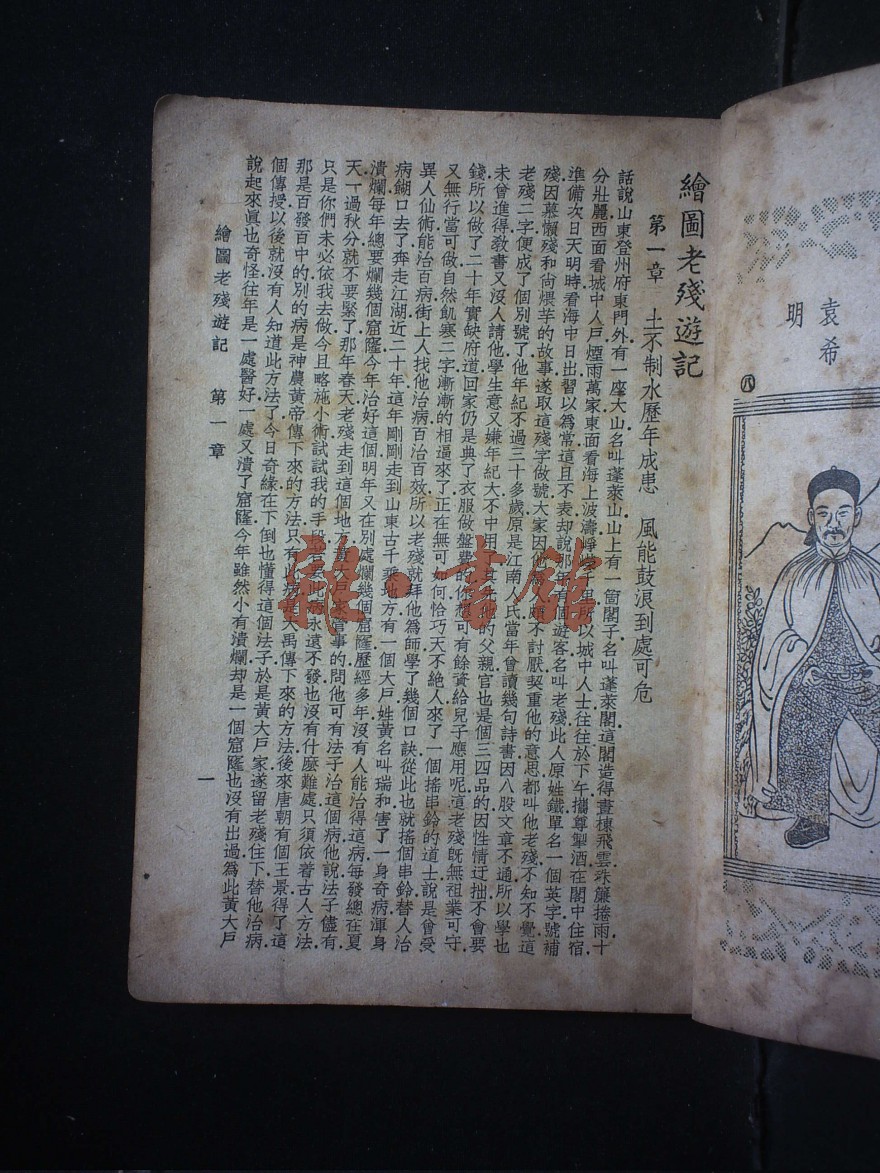 袁希
明
八
繪圖老殘遊記
第一章　土不制水歷年成患　風能鼓浪到處可危
話說山東登州府東門外有一座大山名叫蓬萊山.山上有一箇閣子名叫蓬萊閣.這閣造得畫棟飛雲.珠簾捲雨.十
分壯麗.西面看城中人戶.煙雨萬家.東面看海上波濤.崢嶸千里.所以城中人士往往於下午攜尊挈酒在閣中住宿.
準備次日天明時看海中日出.習以為常.這且不表.却說那年有個遊客名叫老殘.此人原姓鐵.單名一個英字.號補
殘.因慕懶殘和尚煨芋的故事.遂取這殘字做號.大家因他為人頗不討厭.契重他的意思.都叫他老殘.不知不覺.這
老殘二字便成了個別號了.他年紀不過三十多歲.原是江南人氏.當年曾讀幾句詩書.因八股文章不通.所以學也
未曾進得.教書又沒人請他.學生意又嫌年紀大.不中用了.其先他的父親官也是個三四品的.因性情迂拙.不會要
錢.所以做了二十年實缺府道.回家仍是典了衣服做盤費的.你想可有餘資給兒子應用呢.這老殘旣無祖業可守.
又無行當可做.自然飢寒二字漸漸的相逼來了.正在無可如何.恰巧天不絕人.來了一個搖串鈴的道士.說是曾受
異人仙術.能治百病.街上人找他治病.百治百效.所以老殘就拜他為師.學了幾個口訣.從此也就搖個串鈴.替人治
病餬口去了.奔走江湖近二十年.這年剛剛走到山東古千乘地方.有一個大戶姓黃名叫瑞和.害了一身奇病.渾身
潰爛.每年總要爛幾個窟窿.今年治好這個.明年又在別處爛幾個窟窿.歷經多年.沒有人能治得這病.每發總在夏
天.一過秋分.就不要緊了.那年春天.老殘走到這個地方.黃大戶家管事的問他可有法子治這個病.他說法子儘有.
只是你們未必依我去做.今且略施小術.試試我的手段.若要此病永遠不發.也沒有什麼難處.只須依着古人方法.
那是百發百中的.別的病是神農黃帝傳下來的方法.只有此病是大禹傳下來的方法.後來唐朝有個王景.得了這
個傳授.以後就沒有人知道此方法了.今日奇緣.在下倒也懂得這個法子.於是黃大戶家遂留老殘住下.替他治病.
說起來真也奇怪.往年是一處醫好.一處又潰了窟窿.今年雖然小有潰爛.却是一個窟窿也沒有出過.為此黃大戶
繪圖老殘遊記　第一章
一
雜·書館